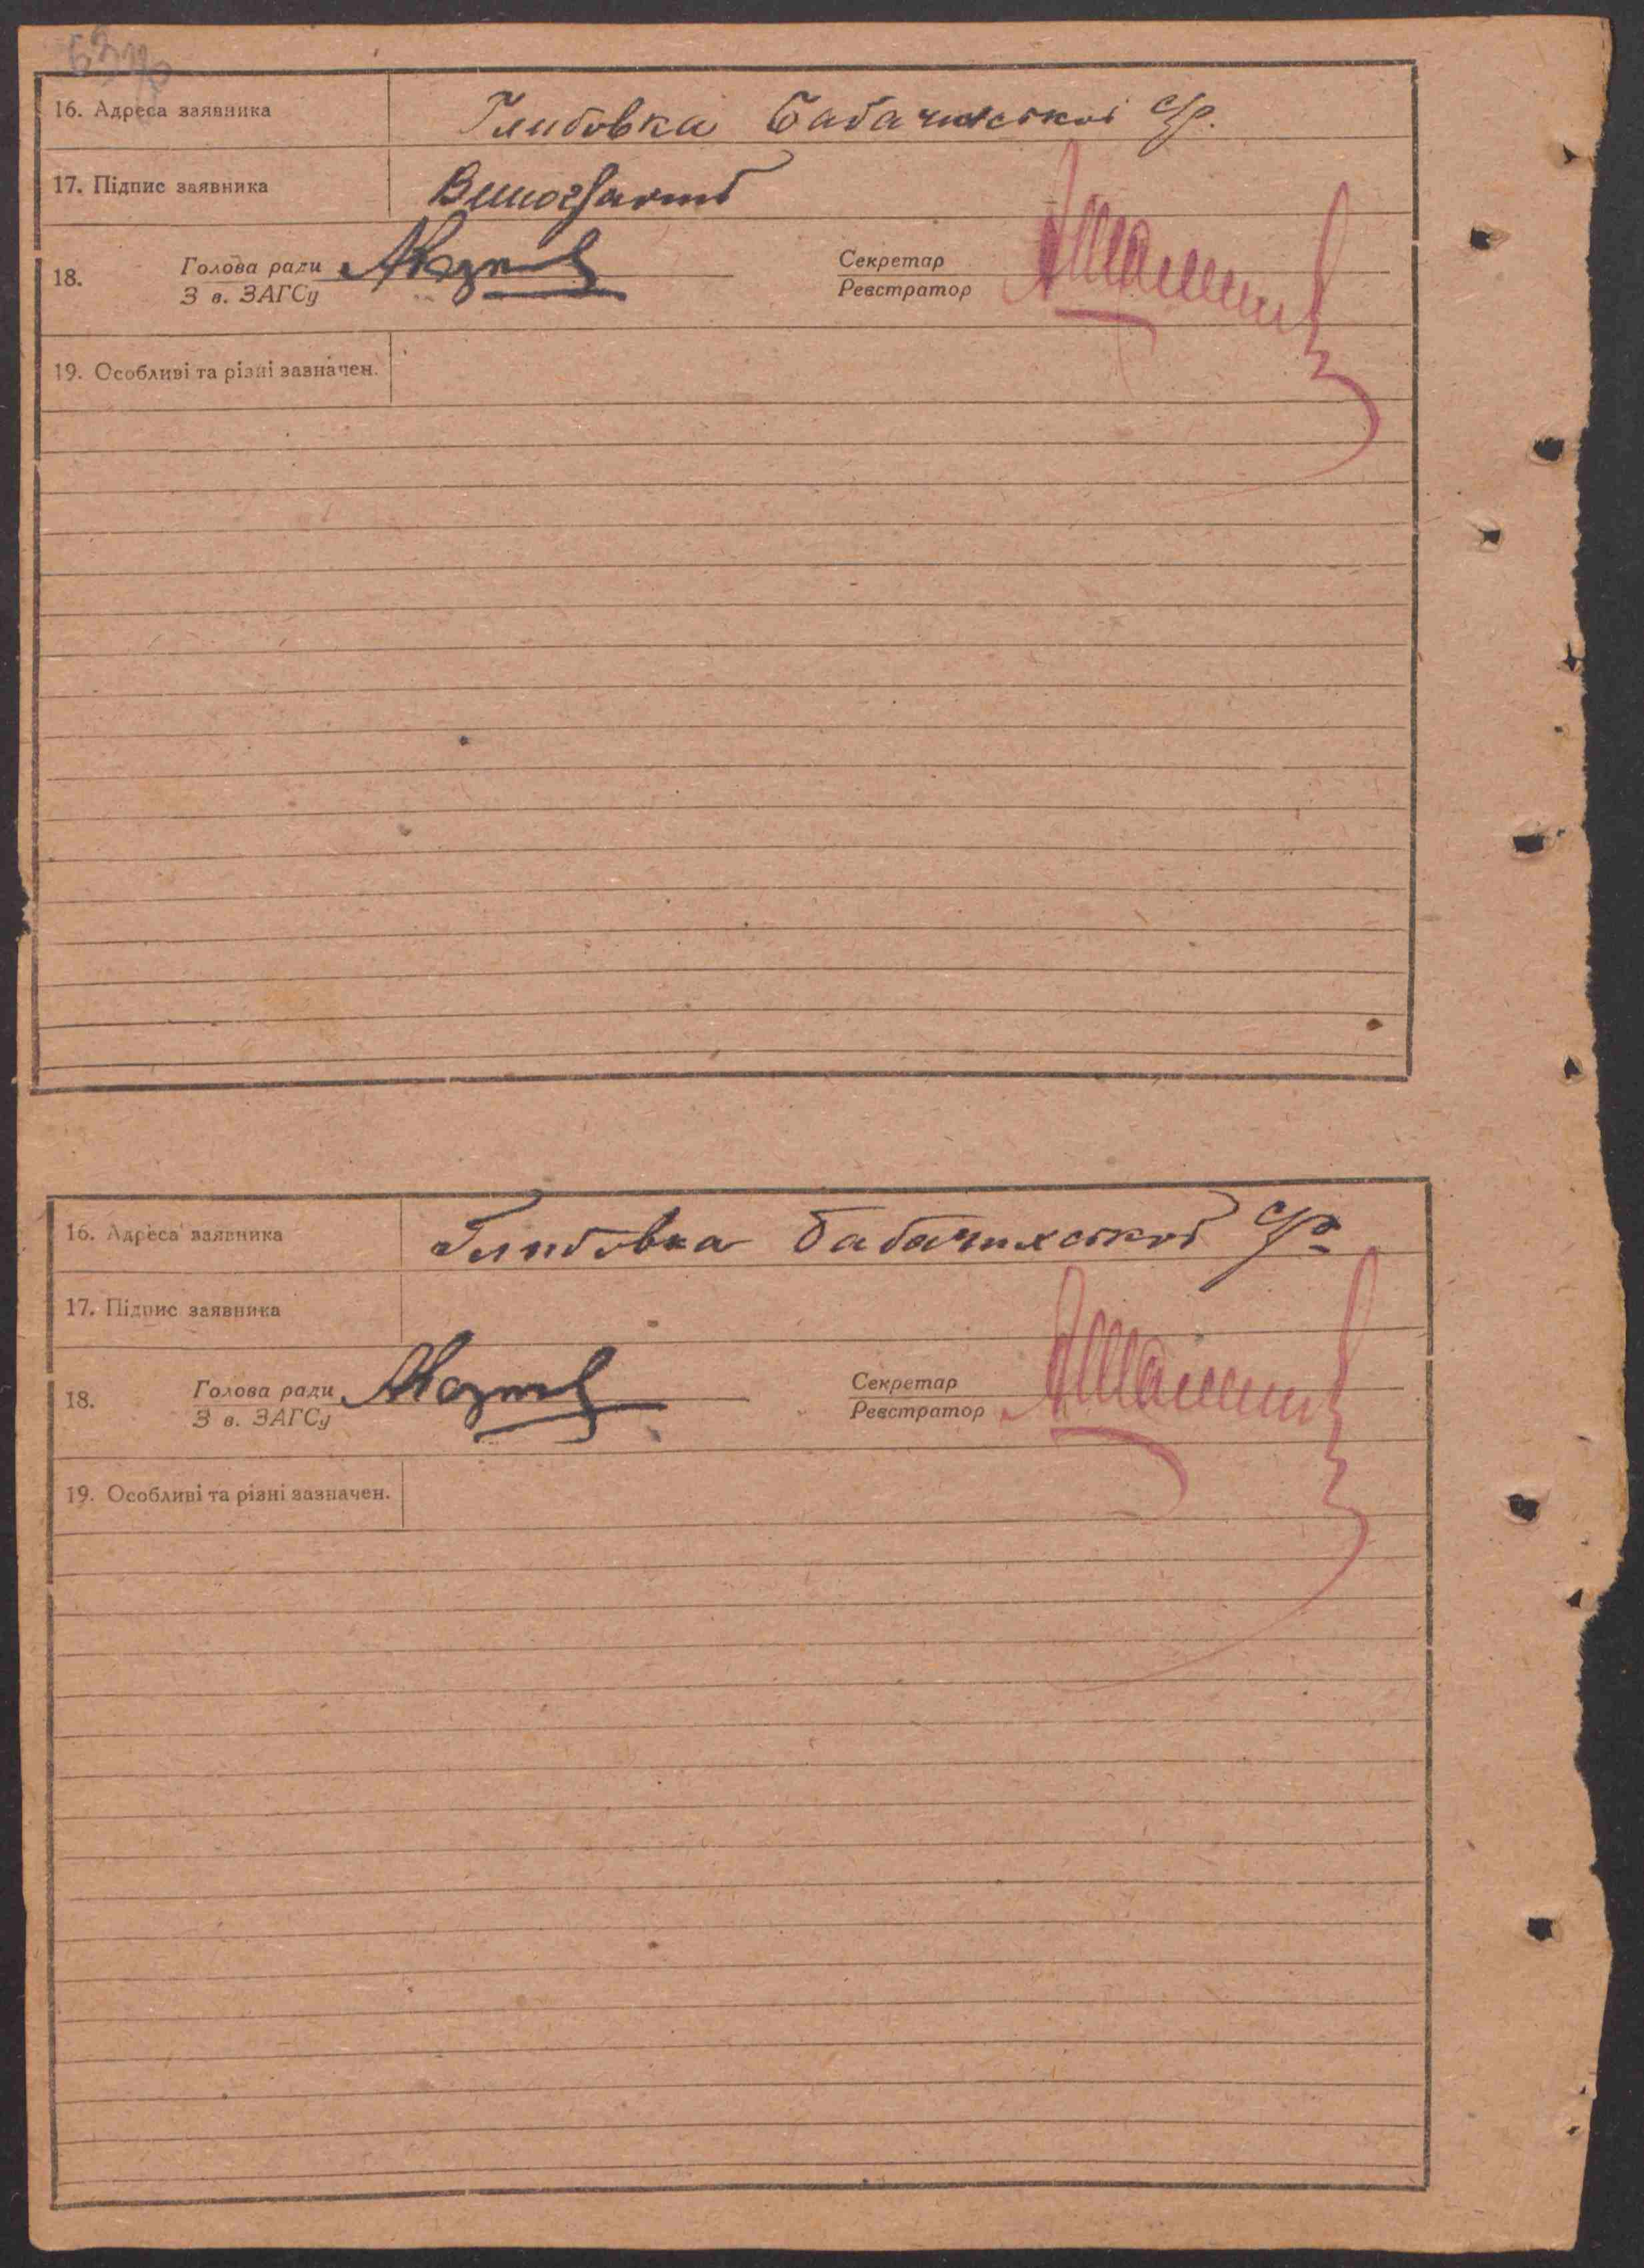 16. Адреса заявника Глибовка Бабачихської с/р.
17. Підпис заявника
18. Голова ради Секретар
З в. ЗАГСу Реєстратор
19. Особливі та різні зазначен.
16. Адреса заявника Глибовка Бабачихської с/р
17. Підпис заявника
18. Голова ради Секретар
З в. ЗАГСу Реєстратор
19. Особливі та різні зазначен.